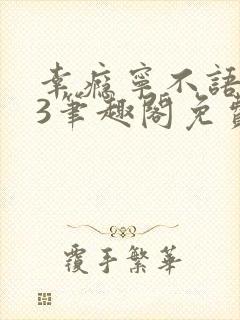 幸瘾宁不語
3筆趣阁免費
覆手繁華